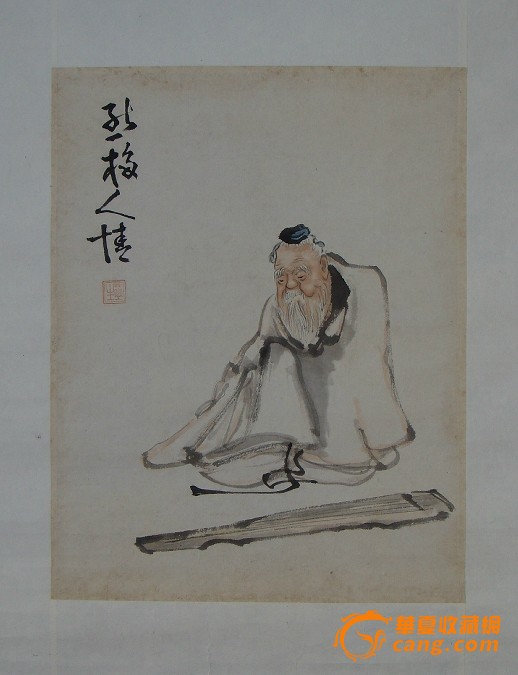 能移人情
華夏收藏網
cang.com